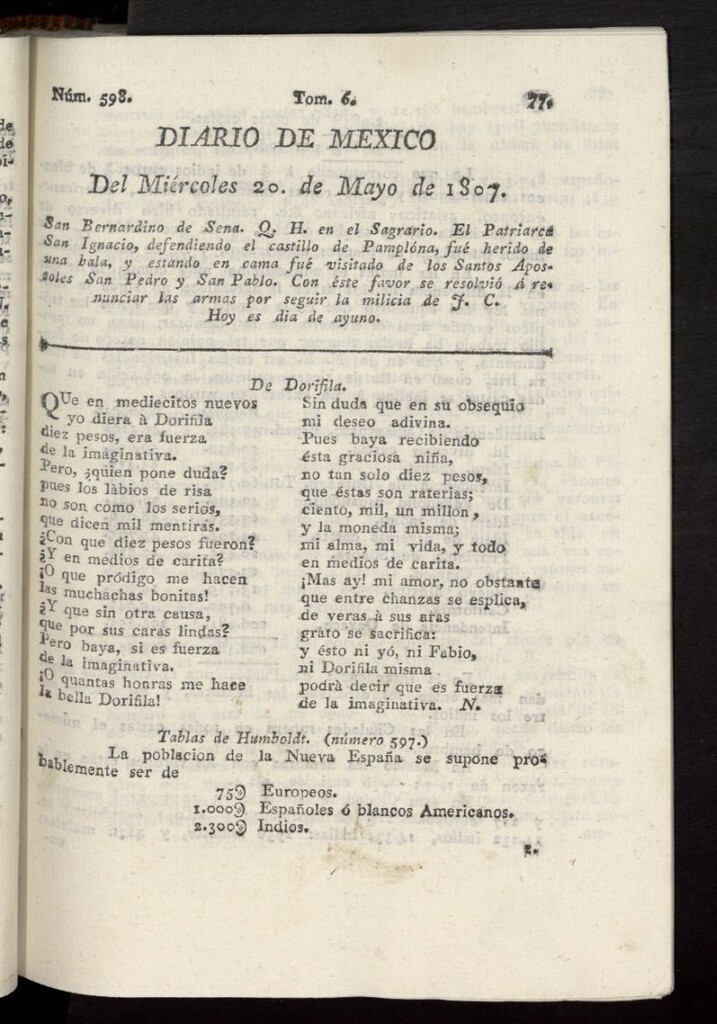 Núm. 598. Tom. 6. 77.
DIARIO DE MEXICO
Del Miércoles 20. de Mayo de 1807.
San Bernardino de Sena. Q. H. en el Sagrario. El Patriarca
San Ignacio, defendiendo el castillo de Pamplóna, fué herido de
una bala, y estando en cama fué visitado de los Santos Apos-
toles San Pedro y San Pablo. Con éste favor se resolvió á re-
nunciar las armas por seguir la milicia de J. C.
Hoy es dia de ayuno.
De Dorifila.
QUe en mediecitos nuevos
yo diera à Dorifila
diez pesos, era fuerza
de la imaginativa.
Pero, ¿quien pone duda?
pues los làbios de risa
no son como los serios,
que dicen mil mentiras.
¿Con que diez pesos fueron?
¿Y en medios de carita?
¡O que pródigo me hacen
las muchachas bonitas!
¿Y que sin otra causa,
que por sus caras lindas?
Pero baya, si es fuerza
de la imaginativa.
¡O quantas honras me hace
la bella Dorifila!
Sin duda que en su obsequio
mi deseo adivina.
Pues baya recibiendo
ésta graciosa niña,
no tan solo diez pesos,
que éstas son raterias;
ciento, mil, un millon,
y la moneda misma;
mi alma, mi vida, y todo
en medios de carita.
¡Mas ay! mi amor, no obstante
que entre chanzas se esplica,
de veras à sus aras
grato se sacrifica:
y ésto ni yó, ni Fabio,
ni Dorifila misma
podrà decir que es fuerza
de la imaginativa. N.
Tablas de Humboldt. (número 597.)
La poblacion de la Nueva España se supone pro-
bablemente ser de
75@ Europeos.
1.000@ Españoles ó blancos Americanos.
2.300@ Indios.
2.